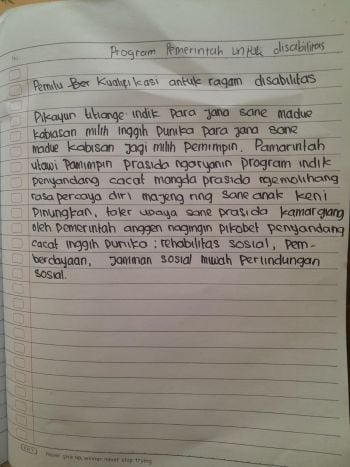 Program Pemerintah untuk disabilitas
Pemilu Ber Kualifikasi untuk ragam disabilitas
Pikayun titiange indik para jana sane madue
kabiasan milih inggih punika para jana sane
madue kabisan jagi milih pemimpin. Pamarintah
utawi Pamimpin prasida ngaryanin program indik
penyandang cacat mangda prasida ngemolihang
rasa percaya diri majeng ring sane anak keni
pinungkan, taler upaya sane prasida kamargiang
oleh pemerintah anggen nagingin pikobet penyandang
cacat inggih punika : rehabilitas sosial, Pem-
berdayaan, jaminan sosial muwah Perlindungan
sosial.
Never give up, winner never stop trying